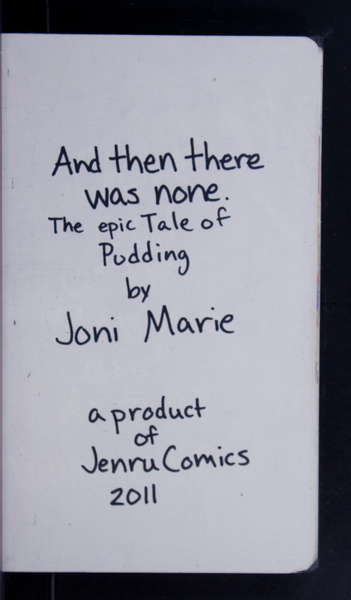 And then there
was none.
The epic Tale of
Pudding
by
Joni Marie
a product
of
Jenru Comics
2011